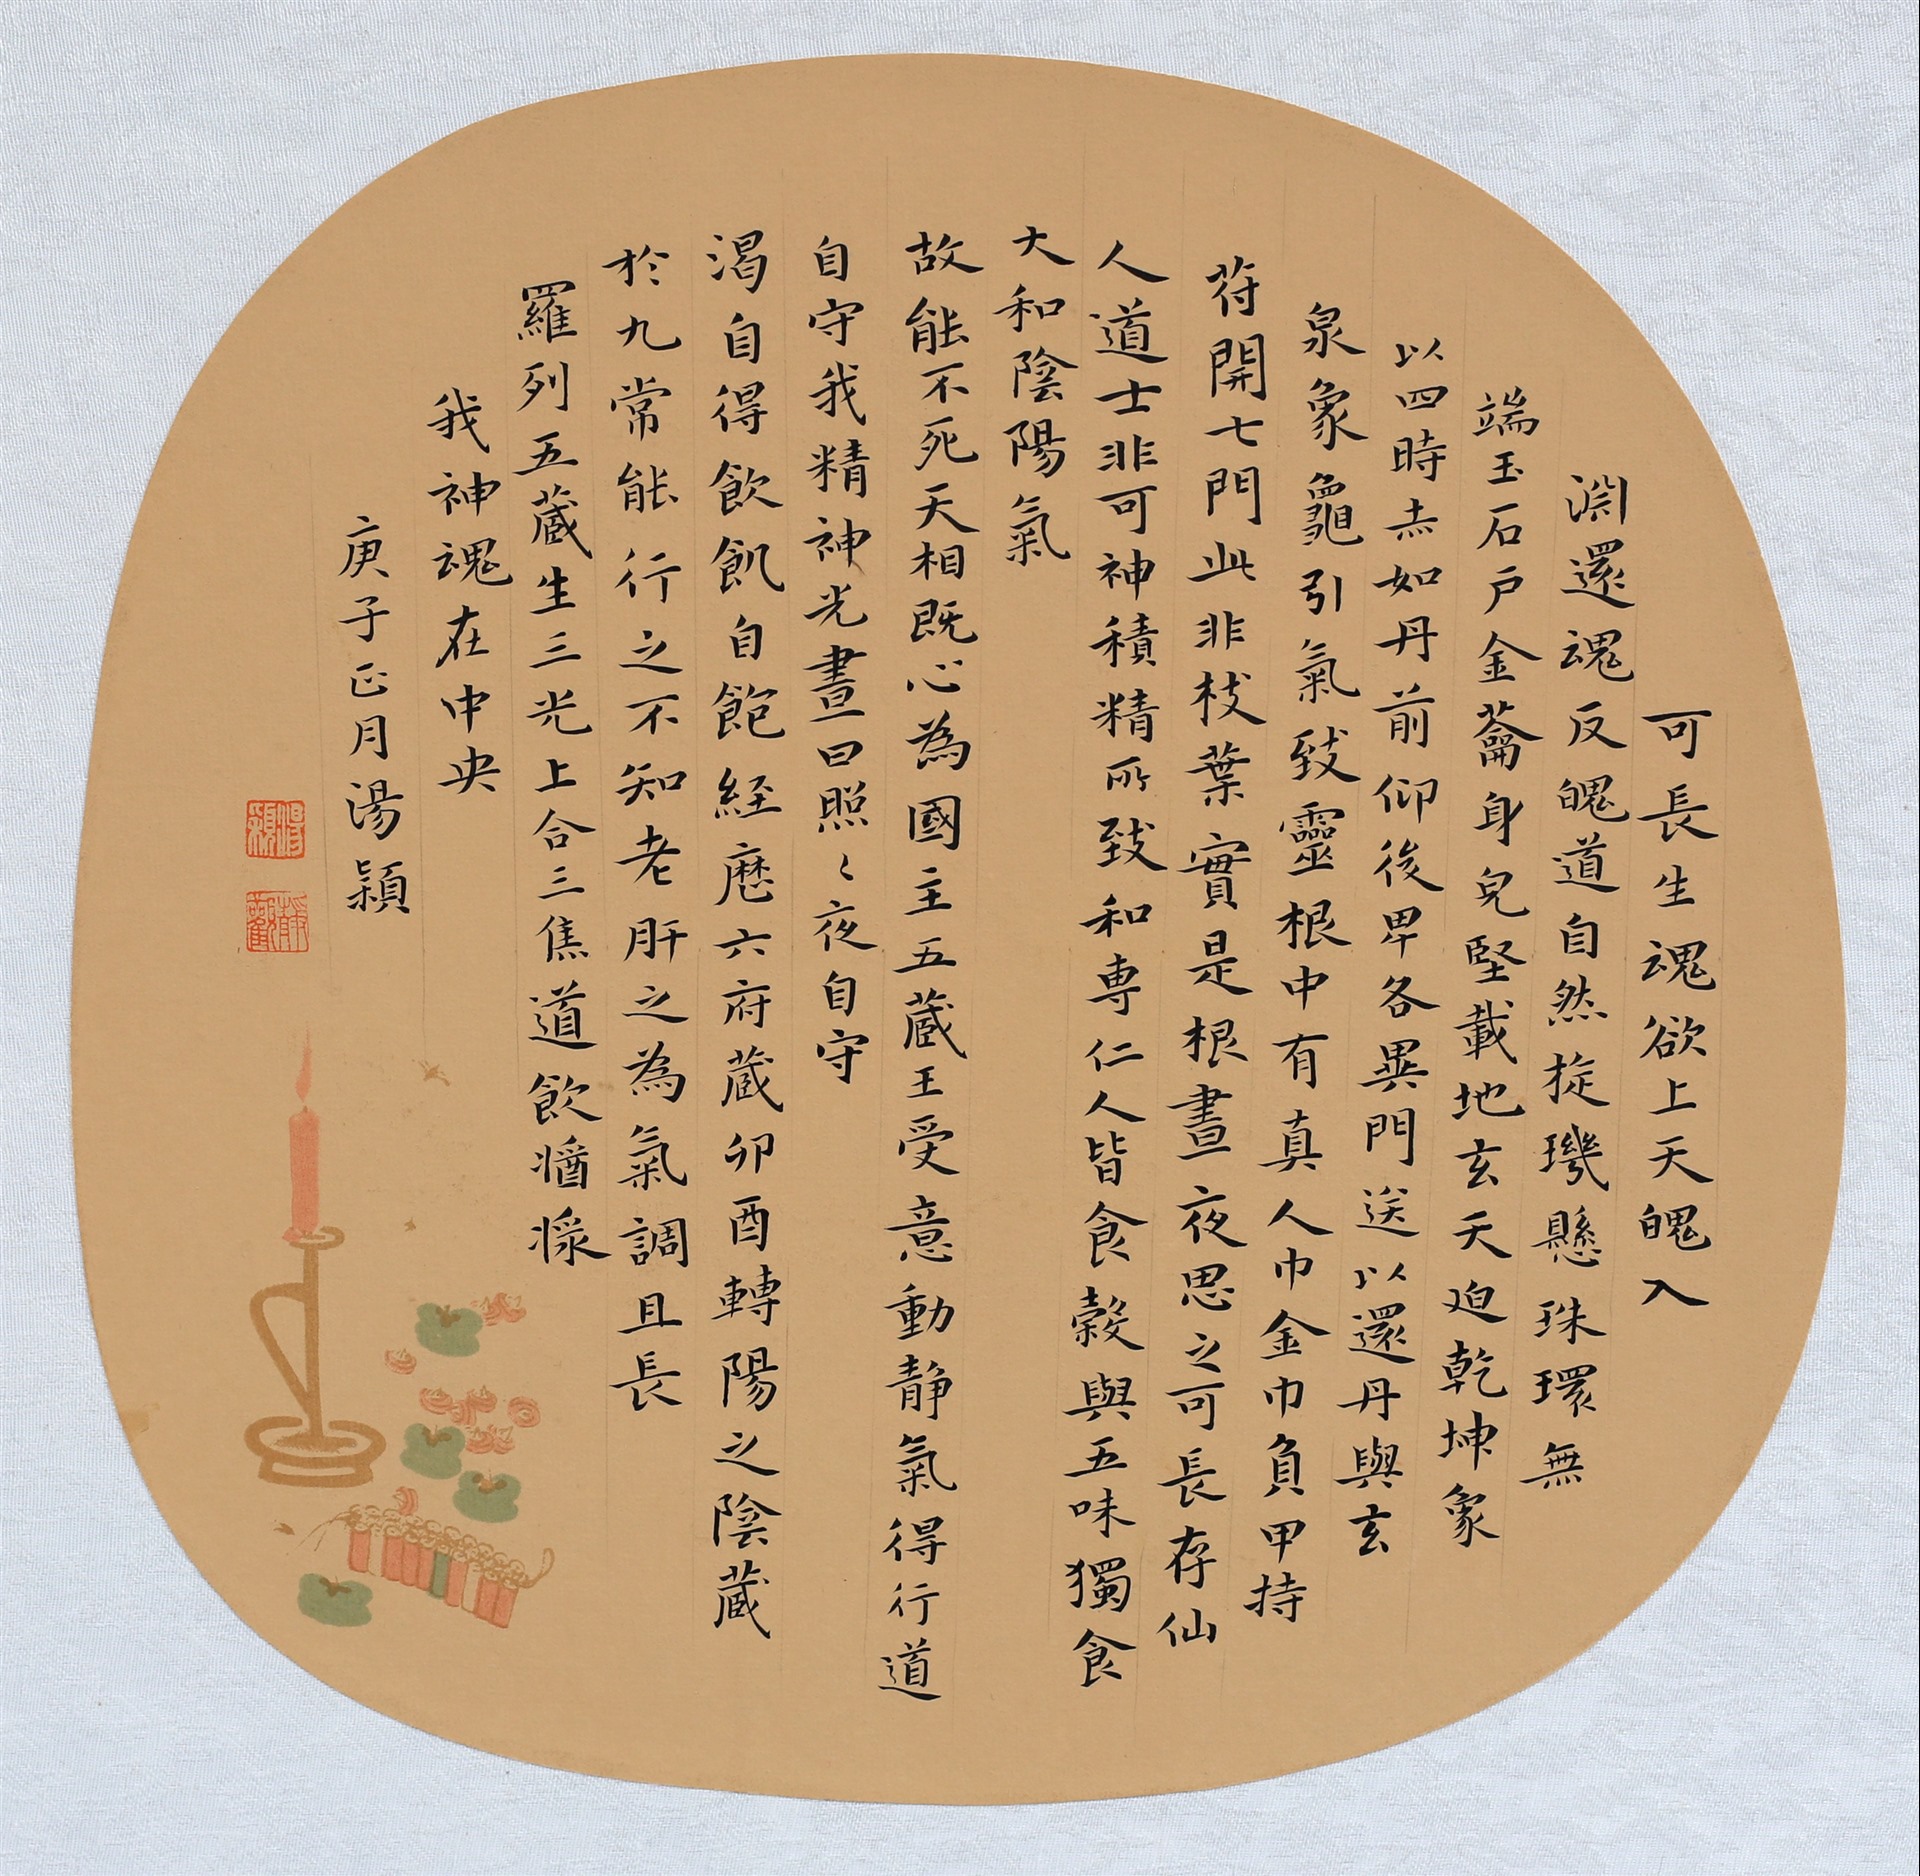 可長生魂欲上天魄入
淵還魂反魄道自然㨁璣懸珠環無
端玉石戶金蘥身皃堅載地玄天迫乾坤象
以四時赤如丹前仰後卑各異門送以還丹與玄
泉象龜引氣致靈根中有真人巾金巾負甲持
苻開七門此非枝葉實是根晝夜思之可長存仙
人道士非可神積精所致和専仁人皆食穀與五味獨食
大和陰陽氣
故能不死天相既心為國主五蔵王受意動静氣得行道
自守我精神光晝日照〻夜自守
渴自得飲飢自飽経歷六府蔵卯酉轉陽之陰蔵
於九常能行之不知老肝之為氣調且長
羅列五蔵生三光上合三焦道飲漿
我神魂在中央
庚子正月湯穎
湯穎